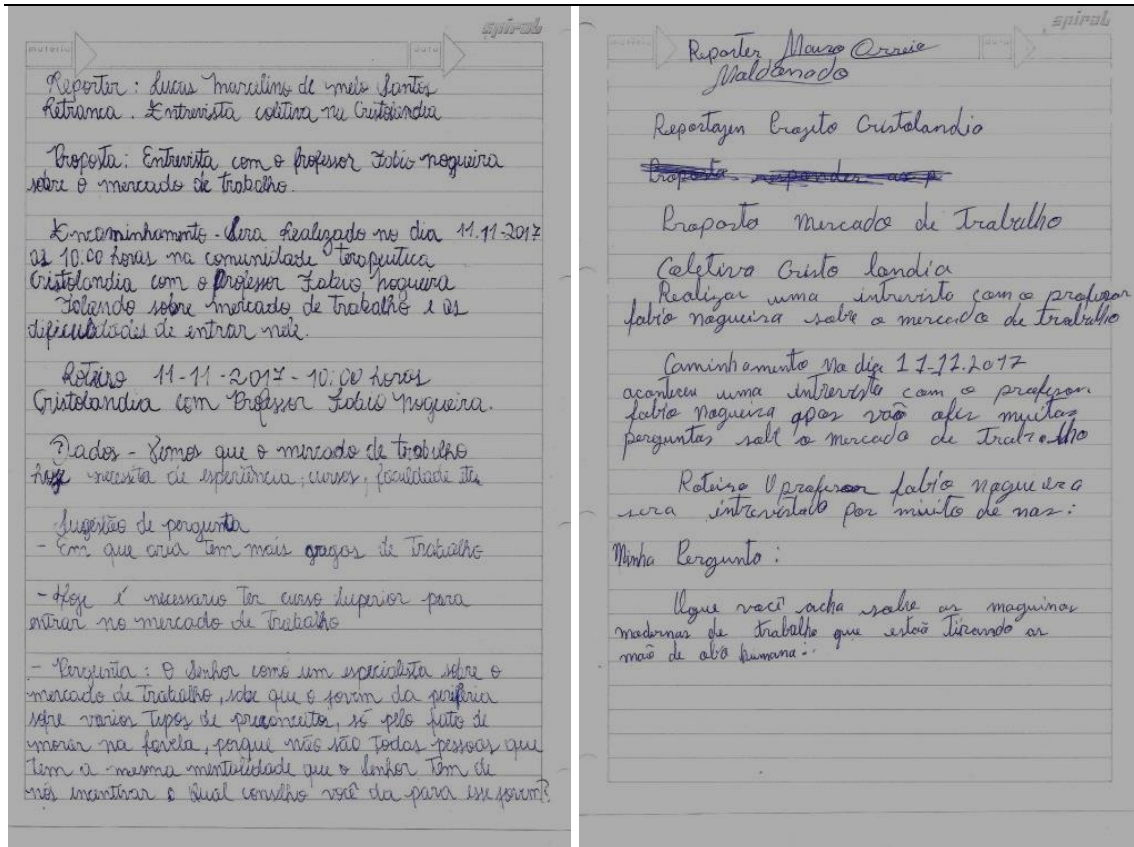 spiral
matéria
data
Reporter : Lucas Marculino de melo Santos
Retranca . Entrevista coletiva na Cristolandia
Proposta : Entrevista com o professor Fabio nogueira
sobre o mercado de trabalho.
Encaminhamento - Sera Realizado no dia 11.11-2017
as 10:00 horas na comunidade terapeutica
Cristolandia com o professor Fabio nogueira
Falando sobre mercado de trabalho e as
dificuldades de entrar nele.
Roteiro 11-11-2017-10:00 horas
Cristolandia com Professor Fabio nogueira.
Dados - Vemos que o mercado de trabalho
hoje necessita de experiência, cursos, faculdade etc
Sugestão de pergunta
- Em que aria tem mais vagas de Trabalho
- Hoje é necessario ter curso Superior para
entrar no mercado de Trabalho
- Pergunta : O Senhor como um especialista sobre o
mercado de Trabalho, sabe que o jovem da periferia
sofre varios Tipos de preconceitos, só pelo fato de
morar na favela, porque não são Todas pessoas que
tem a mesma mentalidade que o Senhor Tem de
nós incentivar e Qual conselho você da para esse jovem?
spiral
matéria
data
Reporter
Maldonado
Reportagen Projeto Cristolandio
Proposta responder as p
Proposta Mercado de Trabalho
Coletiva Cristo landia
Realizar uma intrevista com o professor
fabio nogueira sobre o mercado de trabalho
Caminhamento No dia 11-11.2017
aconteceu uma intrevista com o professor
fabio nogueira muitas
perguntas o mercado de Trabalho
Roteiro O professor fabio nogueira
sera intrevistado por muito de nos :
Minha Pergunta :
Oque você acha sobre as maquinas
modernas de trabalho que estão tirando as
mão de obra humana